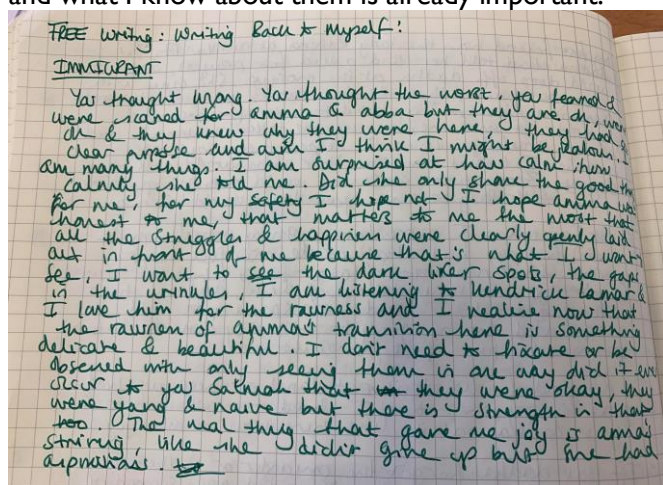 and what I know about them is already important.
FREE writing: Writing Back to myself:
IMMIGRANT
You thought wrong. You thought the worst, you feared &
were scared for amma & abba but they are ok, were
ok & they knew why they were here, they had a
clear purpose and aim I think I might be jealous. I
am many things. I am surprised at how calm, how
calmly she told me. Did she only share the good
For me, for my safety I hope not I hope amma was
honest to me, that matters to me the most that
all the struggles & happiness were clearly openly laid
out in front of me because that's what I want
see, I want to see the dark liver spots, the gaps
in the wrinkles, I am listening to Kendrick Lamar &
I love him for the rawness and I realise now that
the rawness of amma's transition here is something
delicate & beautiful. I don't need to fixate or be
obsessed with only seeing them in one way did it ever
occur to you Salmah that they were okay, they
were young & naive but there is strength in that
too. The real thing that gave me joy is amma's
striving, like she didn't give up but she had
aspirations.